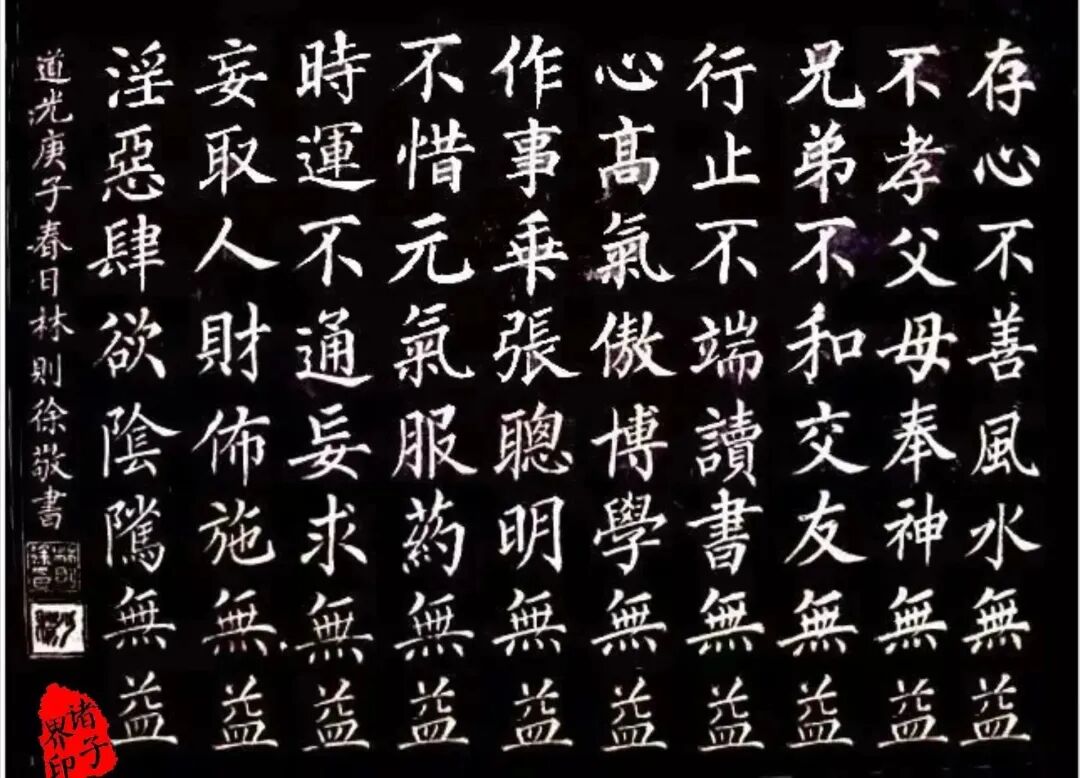 存心不善風水無益
不孝父母奉神無益
兄弟不和交友無益
行止不端讀書無益
心高氣傲博學無益
作事乖張聰明無益
不惜元氣服药無益
時運不通妄求無益
妄取人財佈施無益
淫惡肆欲陰隲無益
道光庚子春日林則徐敬書
诸子
界印